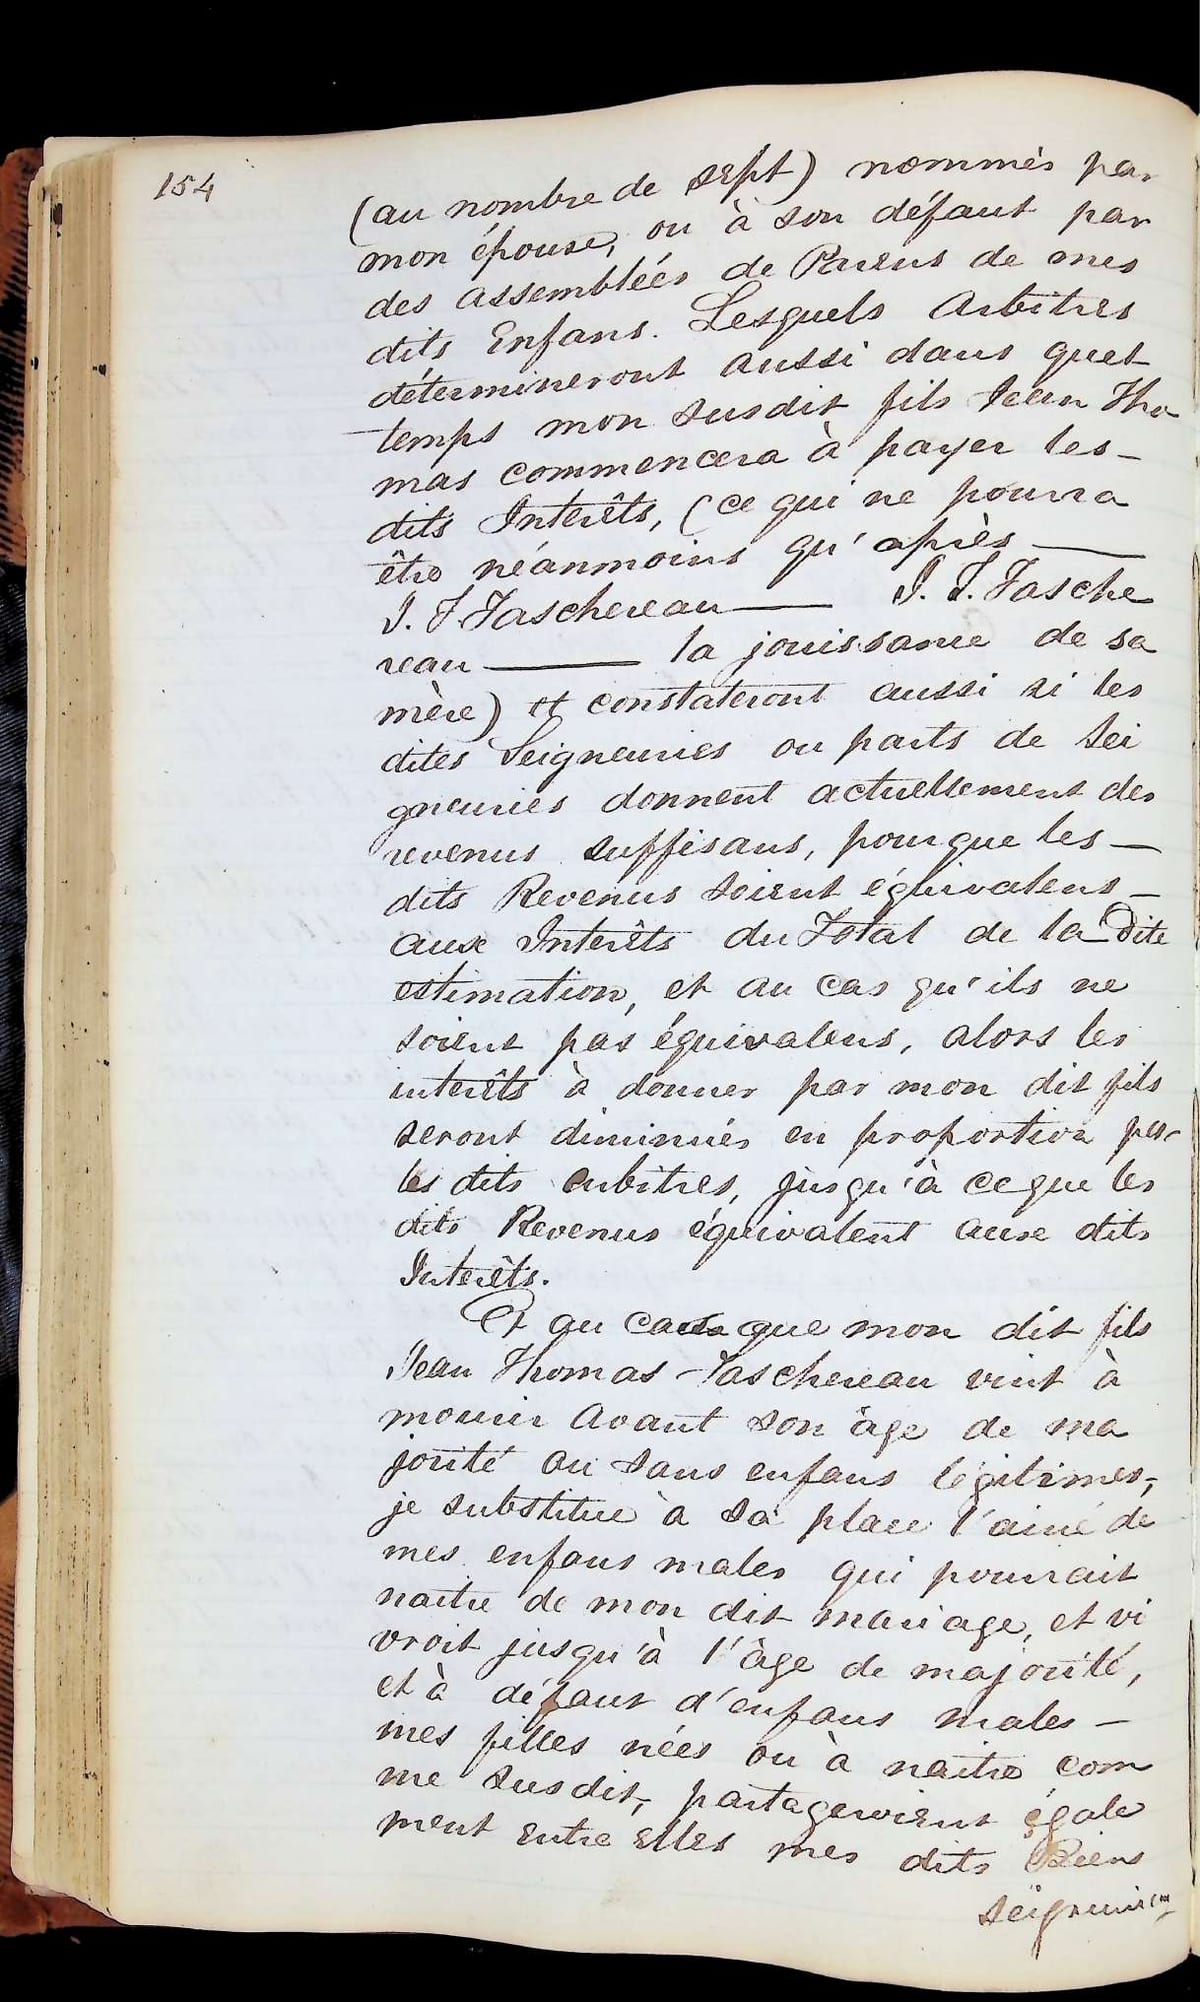 154
(au nombre de sept) nommés par
mon épouse, ou à son défaut par
des assemblées de Parens de mes
dits Enfans. Lesquels Arbitres
détermineront aussi dans quel
temps mon susdit fils Jean Tho
mas commencera à payer les-
dits Interêts, (ce qui ne pourra
être néanmoins qu'après ———
J. T. Taschereau ——— J. T. Tasche
reau ——— la jouissance de sa
mère) et constateront aussi si les
dites Seigneuries ou parts de Sei
gneuries donnent actuellement des
revenus suffisans, pour que les —
dits Revenus soient équivalens —
aux Interêts du Total de la Dite
estimation, et au cas qu'ils ne
soient pas équivalens, alors les
interêts à donner par mon dit fils
seront diminués en proportion par
les dits arbitres, jusqu'à ce que les
dits Revenus équivalent aux dits
Interêts.
Et au cas que mon dit fils
Jean Thomas Taschereau vint à
mourir avant son âge de ma
jorité ou sans enfans légitimes,
je substitue à sa place l'ainé de
mes enfans males qui pourrait
naitre de mon dit mariage, et vi
vroit jusqu'à l'âge de majorité,
et à défaut d'enfans males —
mes filles nées ou à naitre com
me susdit, partageroient égale
ment entre elles mes dits Biens